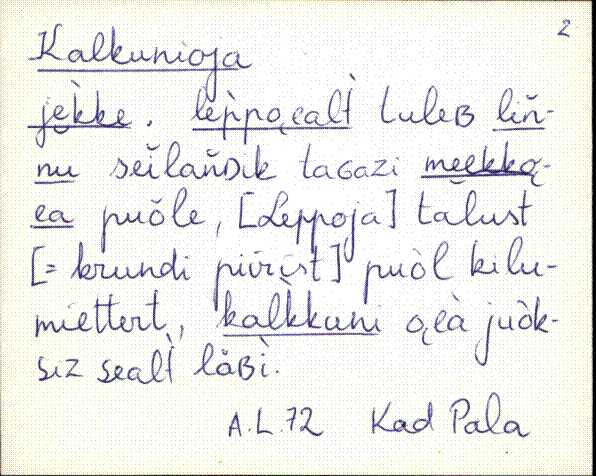 2
Kalkunioja
je̬k̀ke. lep̀po̬ealt̀ tuleʙ liň-
nu seĭlaňᴅik taɢazi meekko̬-
ea puŏle, [Leppoja] tălust
[= krundi piirist] puòl kilu-
miettert, kal̀kkuni o̬eà juòk-
sɪz sealt̀ lǎʙì.
A.L.72 Kad Pala